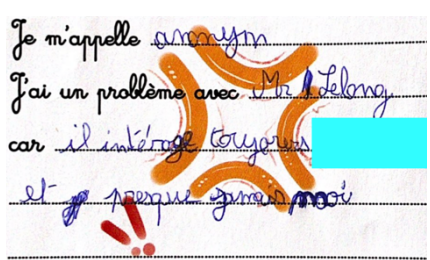 Je m'appelle anonym
J'ai un problème avec Mr Lelong
car il intéroge toujours
et je presque jamais moi